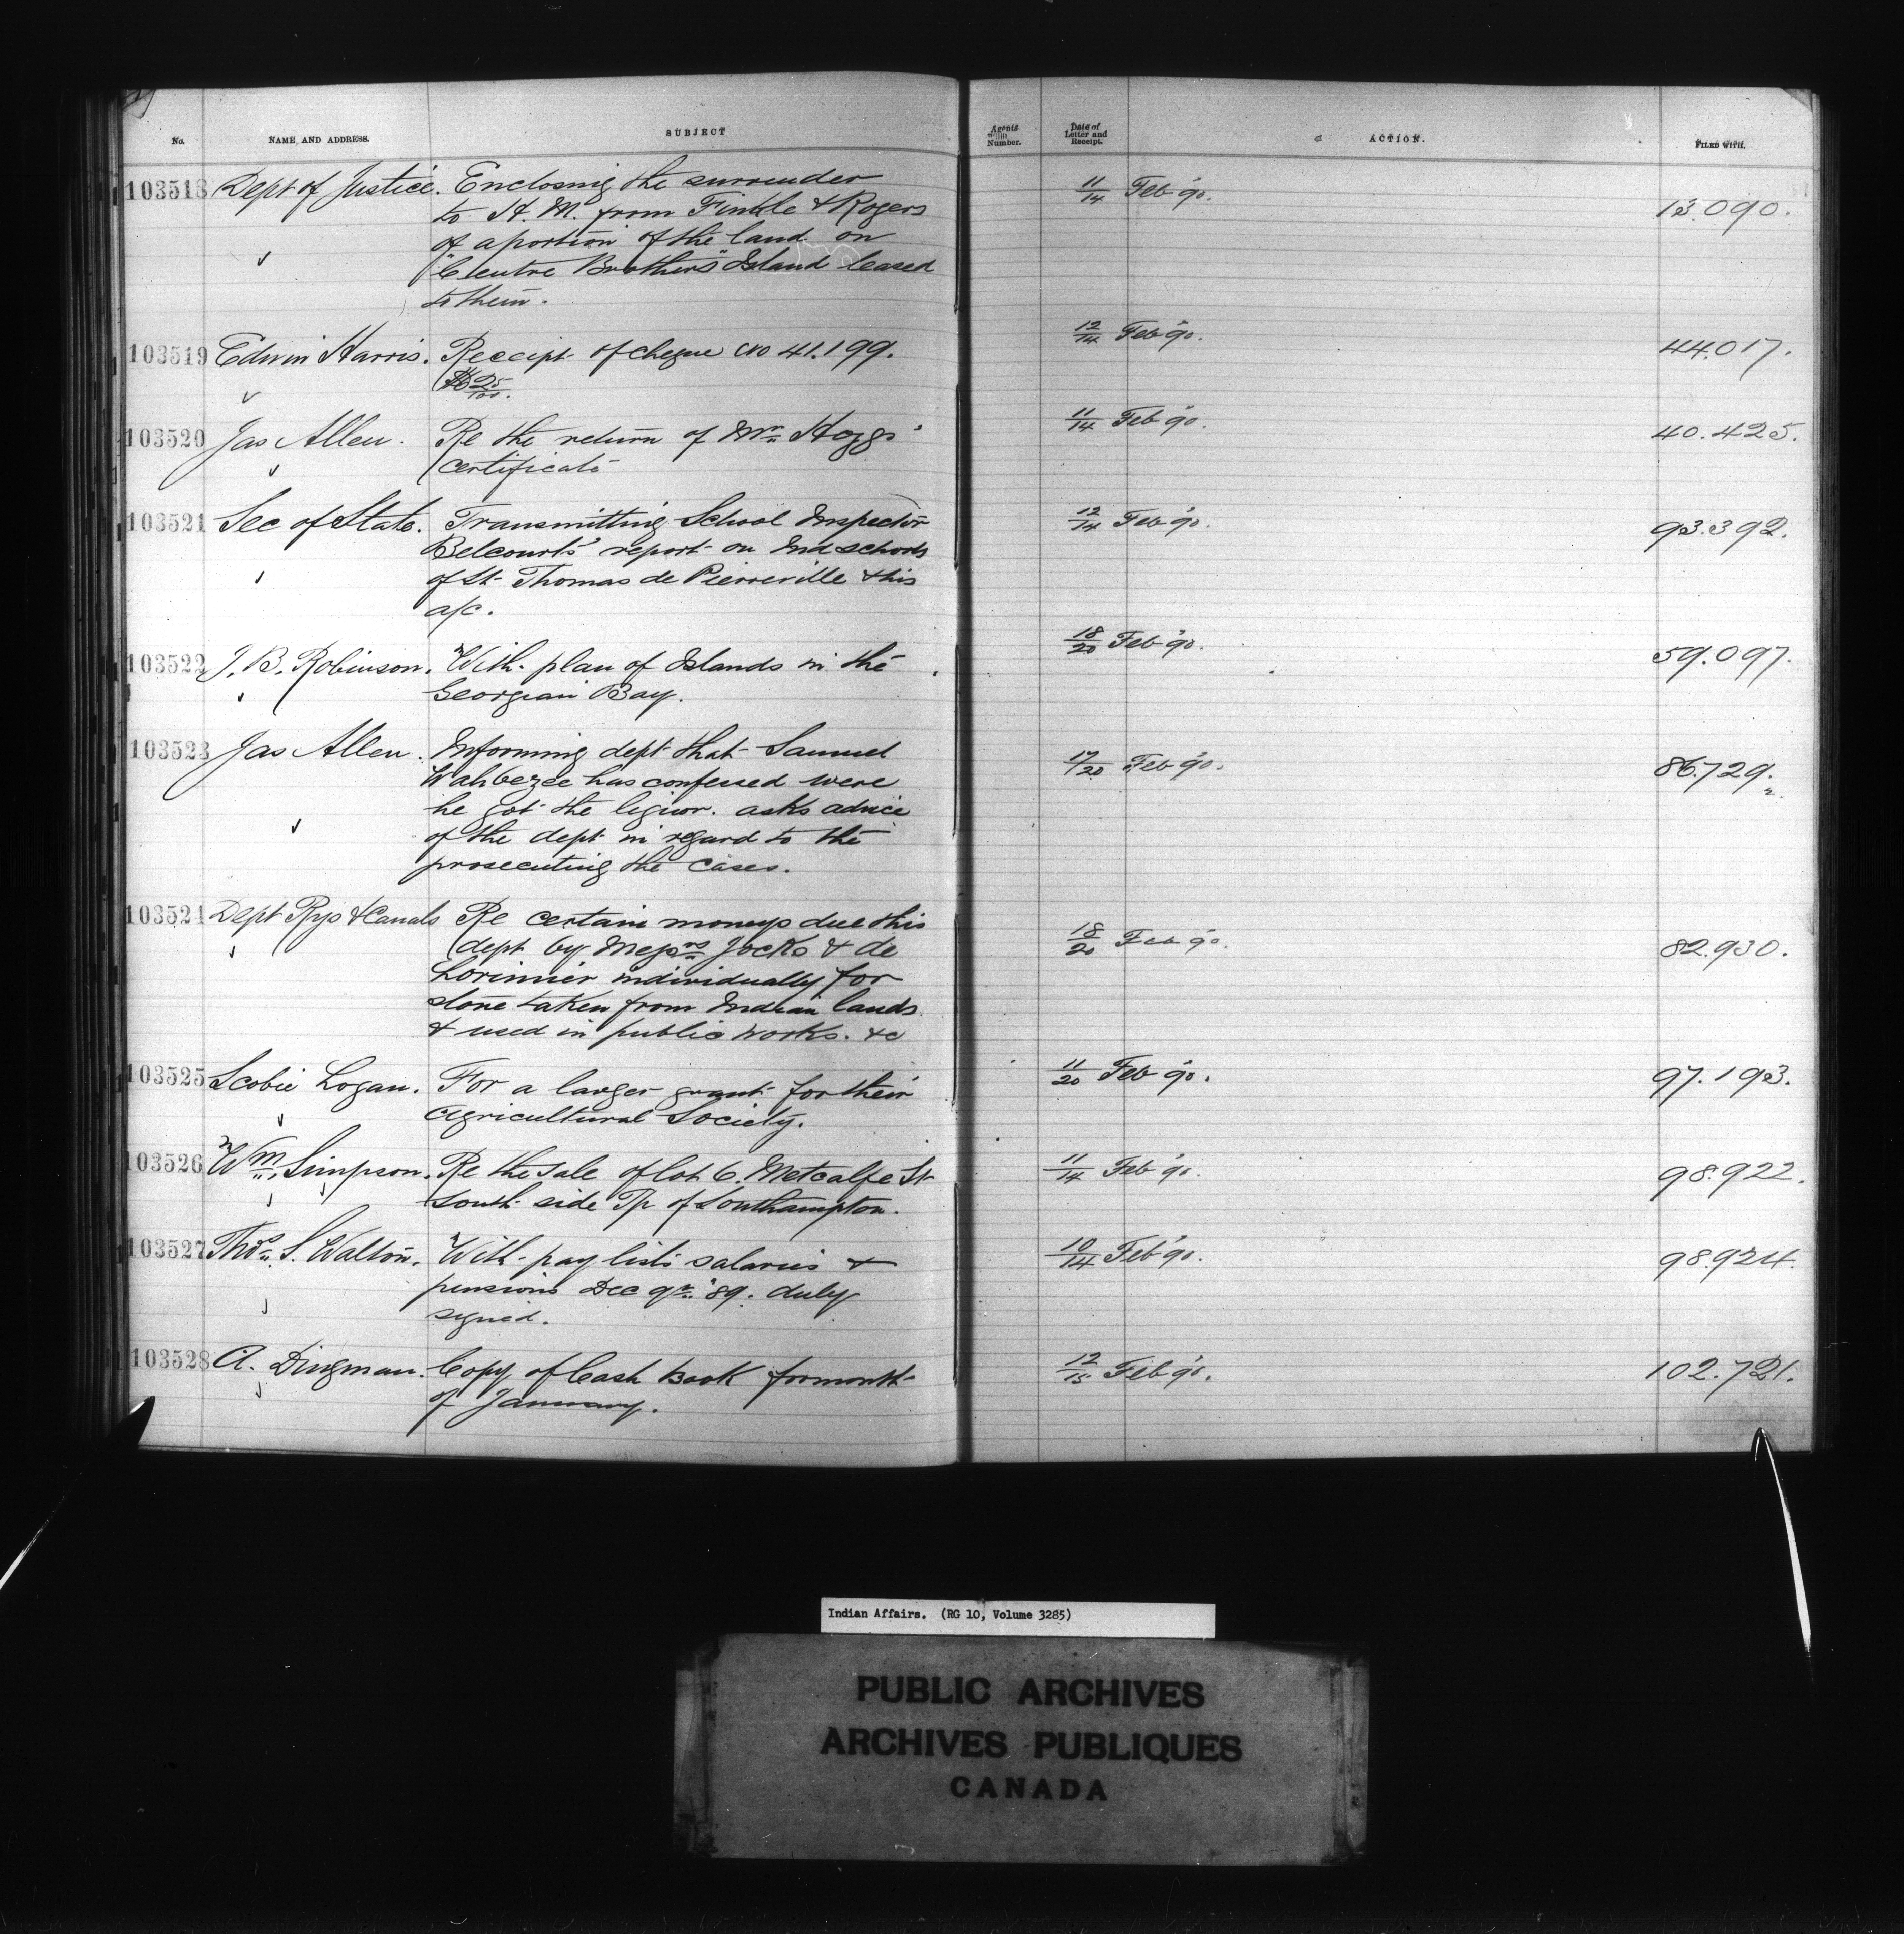 No. NAME AND ADDRESS. SUBJECT Agents Number. Date of Letter and Receipt. ACTION. FILED WITH.
103518 Dept of Justice. Enclosing the surrender 11/14 Feb '90. 13.090.
to H. M. from Finkle & Rogers
of a portion of the land on
"Centre Brothers" Island leased
to them.
103519 Edwin Harris. Receipt of cheque No 41.199. 12/14 Feb '90. 44.017.
25/100.
103520 Jas Allen. Re the return of Mr Hoggs' 11/14 Feb '90. 40.425.
certificate
103521 Sec of State. Transmitting School Inspector 12/14 Feb '90. 93.392.
Belcourt's report on Ind schools
of St Thomas de Pierreville & his
a/c.
103522 J. B. Robinson. With plan of Islands in the 18/20 Feb '90. 59.097.
Georgian Bay.
103523 Jas Allen. Informing dept that Samuel 17/20 Feb '90. 86.729.
Wahbezee has confessed were
he got the liquor. asks advice
of the dept in regard to the
prosecuting the cases.
103524 Dept Rys & Canals Re certain moneys due this 18/20 Feb '90. 82.930.
dept by Messrs Jocks & de
Lorimier individually for
stone taken from Indian lands
& used in public works. &c
103525 Scobie Logan. For a larger grant for their 11/20 Feb '90. 97.193.
Agricultural Society.
103526 Wm Simpson. Re the sale of lot 6. Metcalfe St 11/14 Feb '90. 98.922.
South side Tp of Southampton.
103527 Thos S. Walton. With pay lists salaries & 10/14 Feb '90. 98.924.
pensions Dec qr '89. duly
signed.
103528 A. Dingman. Copy of Cash Book for month 12/15 Feb '90. 102.721.
of January.
Indian Affairs. (RG 10, Volume 3285)
PUBLIC ARCHIVES
ARCHIVES PUBLIQUES
CANADA